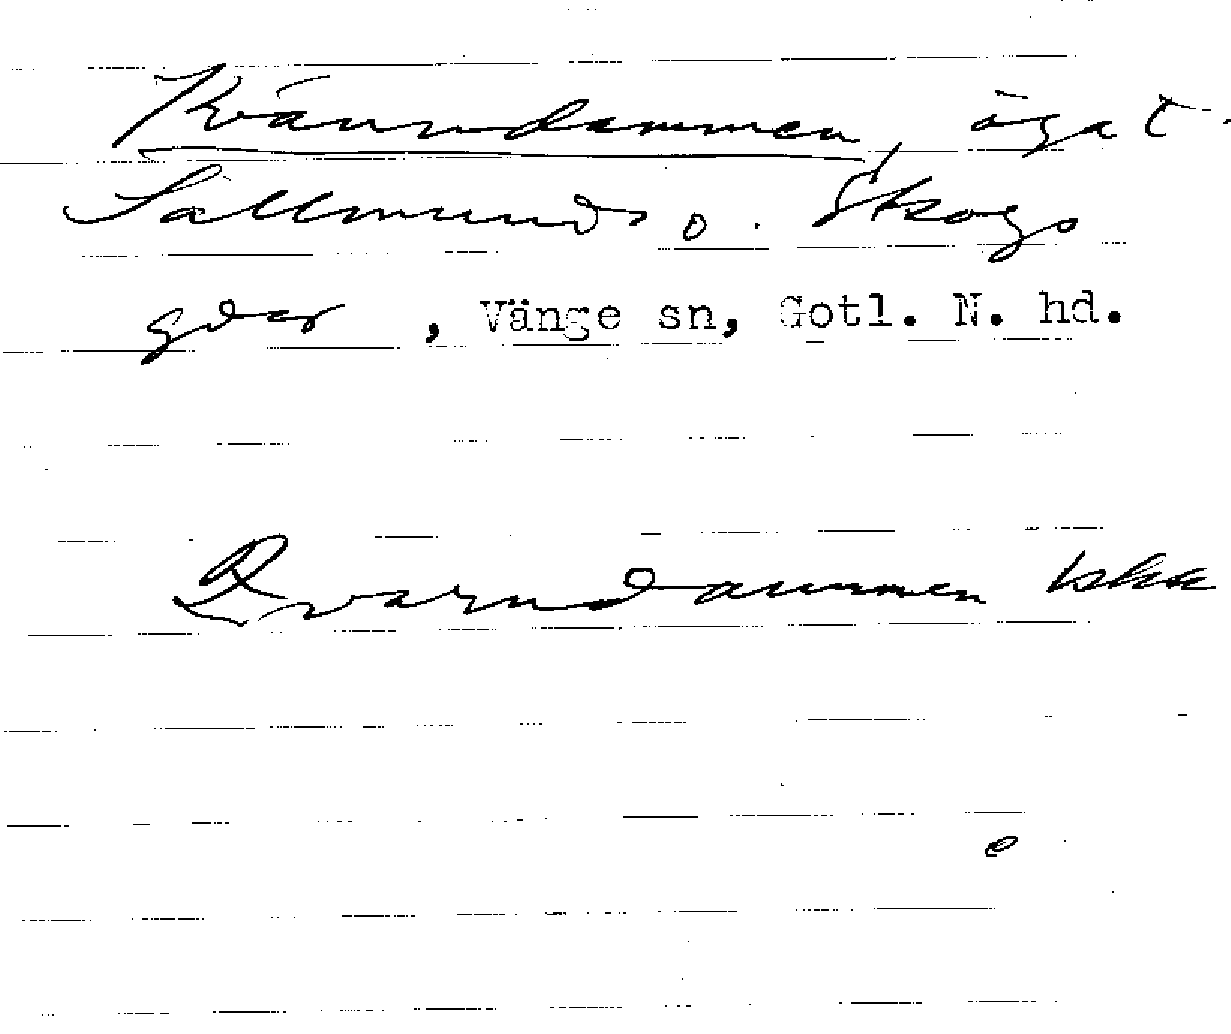 Kvänndammen, ägat.
Sallmunds o. Skogs
gdar, Vänge sn, Gotl. N. hd.
Qvarndammen